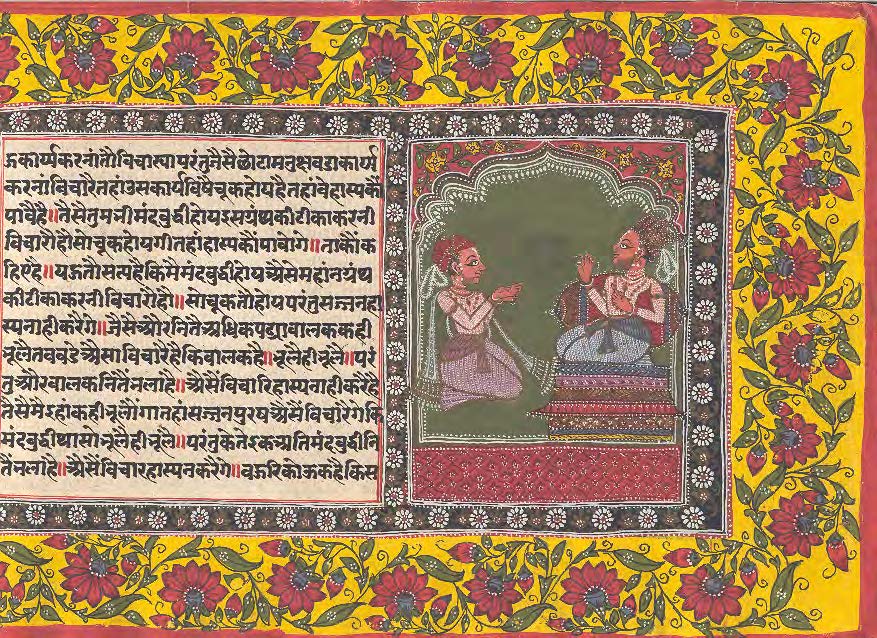 ऊकार्यकरनांतौविचास्यापरंतुजैसैछोटामनुक्षवडाकार्य
करनांविचारैतहांउसकार्यविषैचूकहोयहैतहांवेहास्यकौं
पावैहै॥तैसैतुमभीमंदबुद्धीहोयइसग्रंथकीटीकाकरनी
विचारौहौसोचूकहोयगीतहांहास्यकौंपावोगे॥ताकोंक
हिएहै॥यऊतौसत्यहैकिमैंमंदबुद्धीहोयअैसेमहांनग्रंथ
कीटीकाकरनीविचारौहौं॥सोचूकतौहोयपरंतुसज्जनहा
स्यनाहीकरैंगे॥जैसैऔरनितैअधिकपढ्यावालककही
भूलैतववडेअैसाविचारैहैकिवालकहै॥भूलैहीभूलै॥परं
तुऔरवालकनितैंभलाहै॥अैसैंविचारिहास्यनाहीकरैहै
तैसैंमैंइहांकहीभूलौंगातहांसज्जनपुरषअैसैंविचारैंगेकि
मंदबुद्धीथासोभूलैहीभूलै॥परंतुकेतेइकअतिमंदबुद्धीनि
तैंभलाहै॥अैसैंविचारहास्यनकरैंगे॥वऊरिकोऊकहैकिस